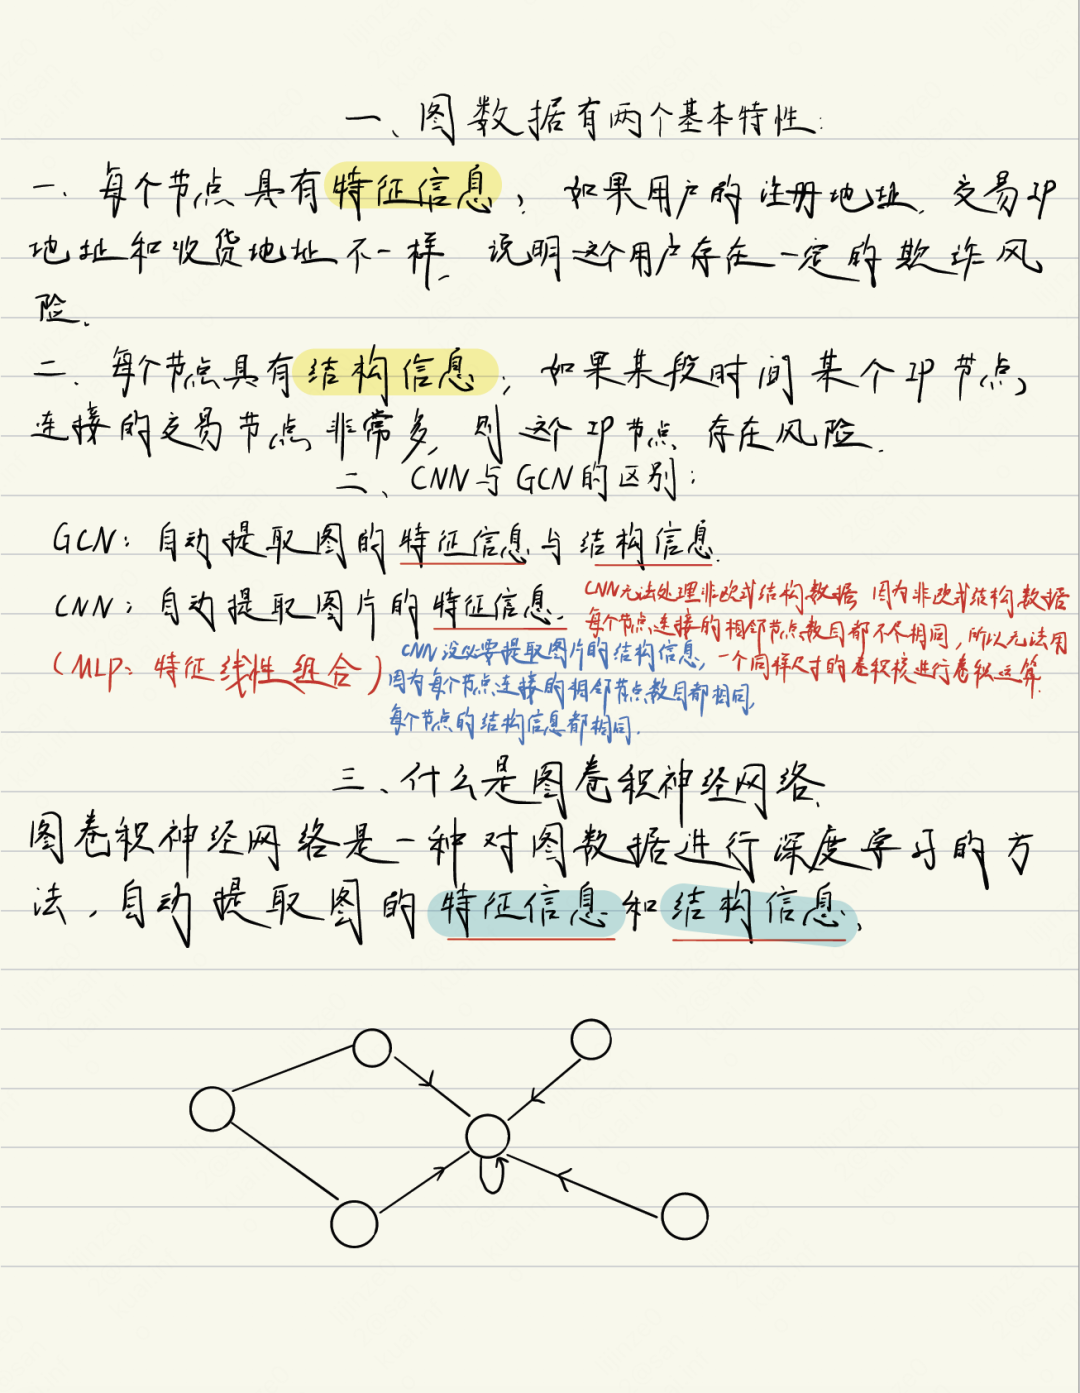 一、图数据有两个基本特性:
一、每个节点具有特征信息;如果用户的注册地址,交易IP
地址和收货地址不一样,说明这个用户存在一定的欺诈风
险。
二、每个节点具有结构信息;如果某段时间某个IP节点
连接的交易节点非常多,则这个IP节点存在风险.
二、CNN与GCN的区别:
GCN:自动提取图的特征信息与结构信息.
CNN:自动提取图片的特征信息.
CNN无法处理非欧式结构数据,因为非欧式结构数据
每个节点连接的相邻节点数目都不尽相同,所以无法用
一个同样尺寸的卷积核进行卷积运算.
(MLP:特征线性组合)
CNN没必要提取图片的结构信息,
因为每个节点连接的相邻节点数目都相同,
每个节点的结构信息都相同.
三、什么是图卷积神经网络、
图卷积神经网络是一种对图数据进行深度学习的方
法,自动提取图的特征信息和结构信息、